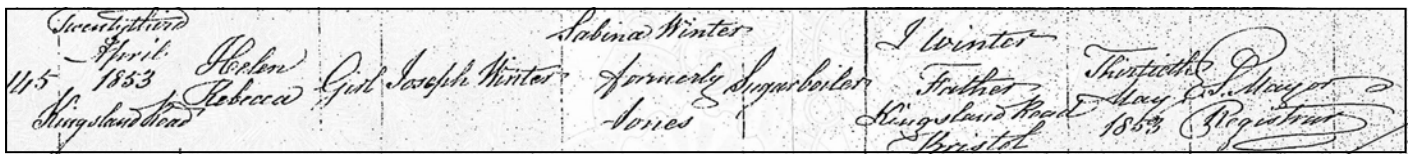 145
Twentythird
April
1853
Kingsland Road
Helen
Rebecca
Girl
Joseph Winter
Sabina Winter
formerly
Jones
Sugarboiler
J Winter
Father
Kingsland Road
Bristol
Thirtieth
May
1853
S. Mayor
Registrar